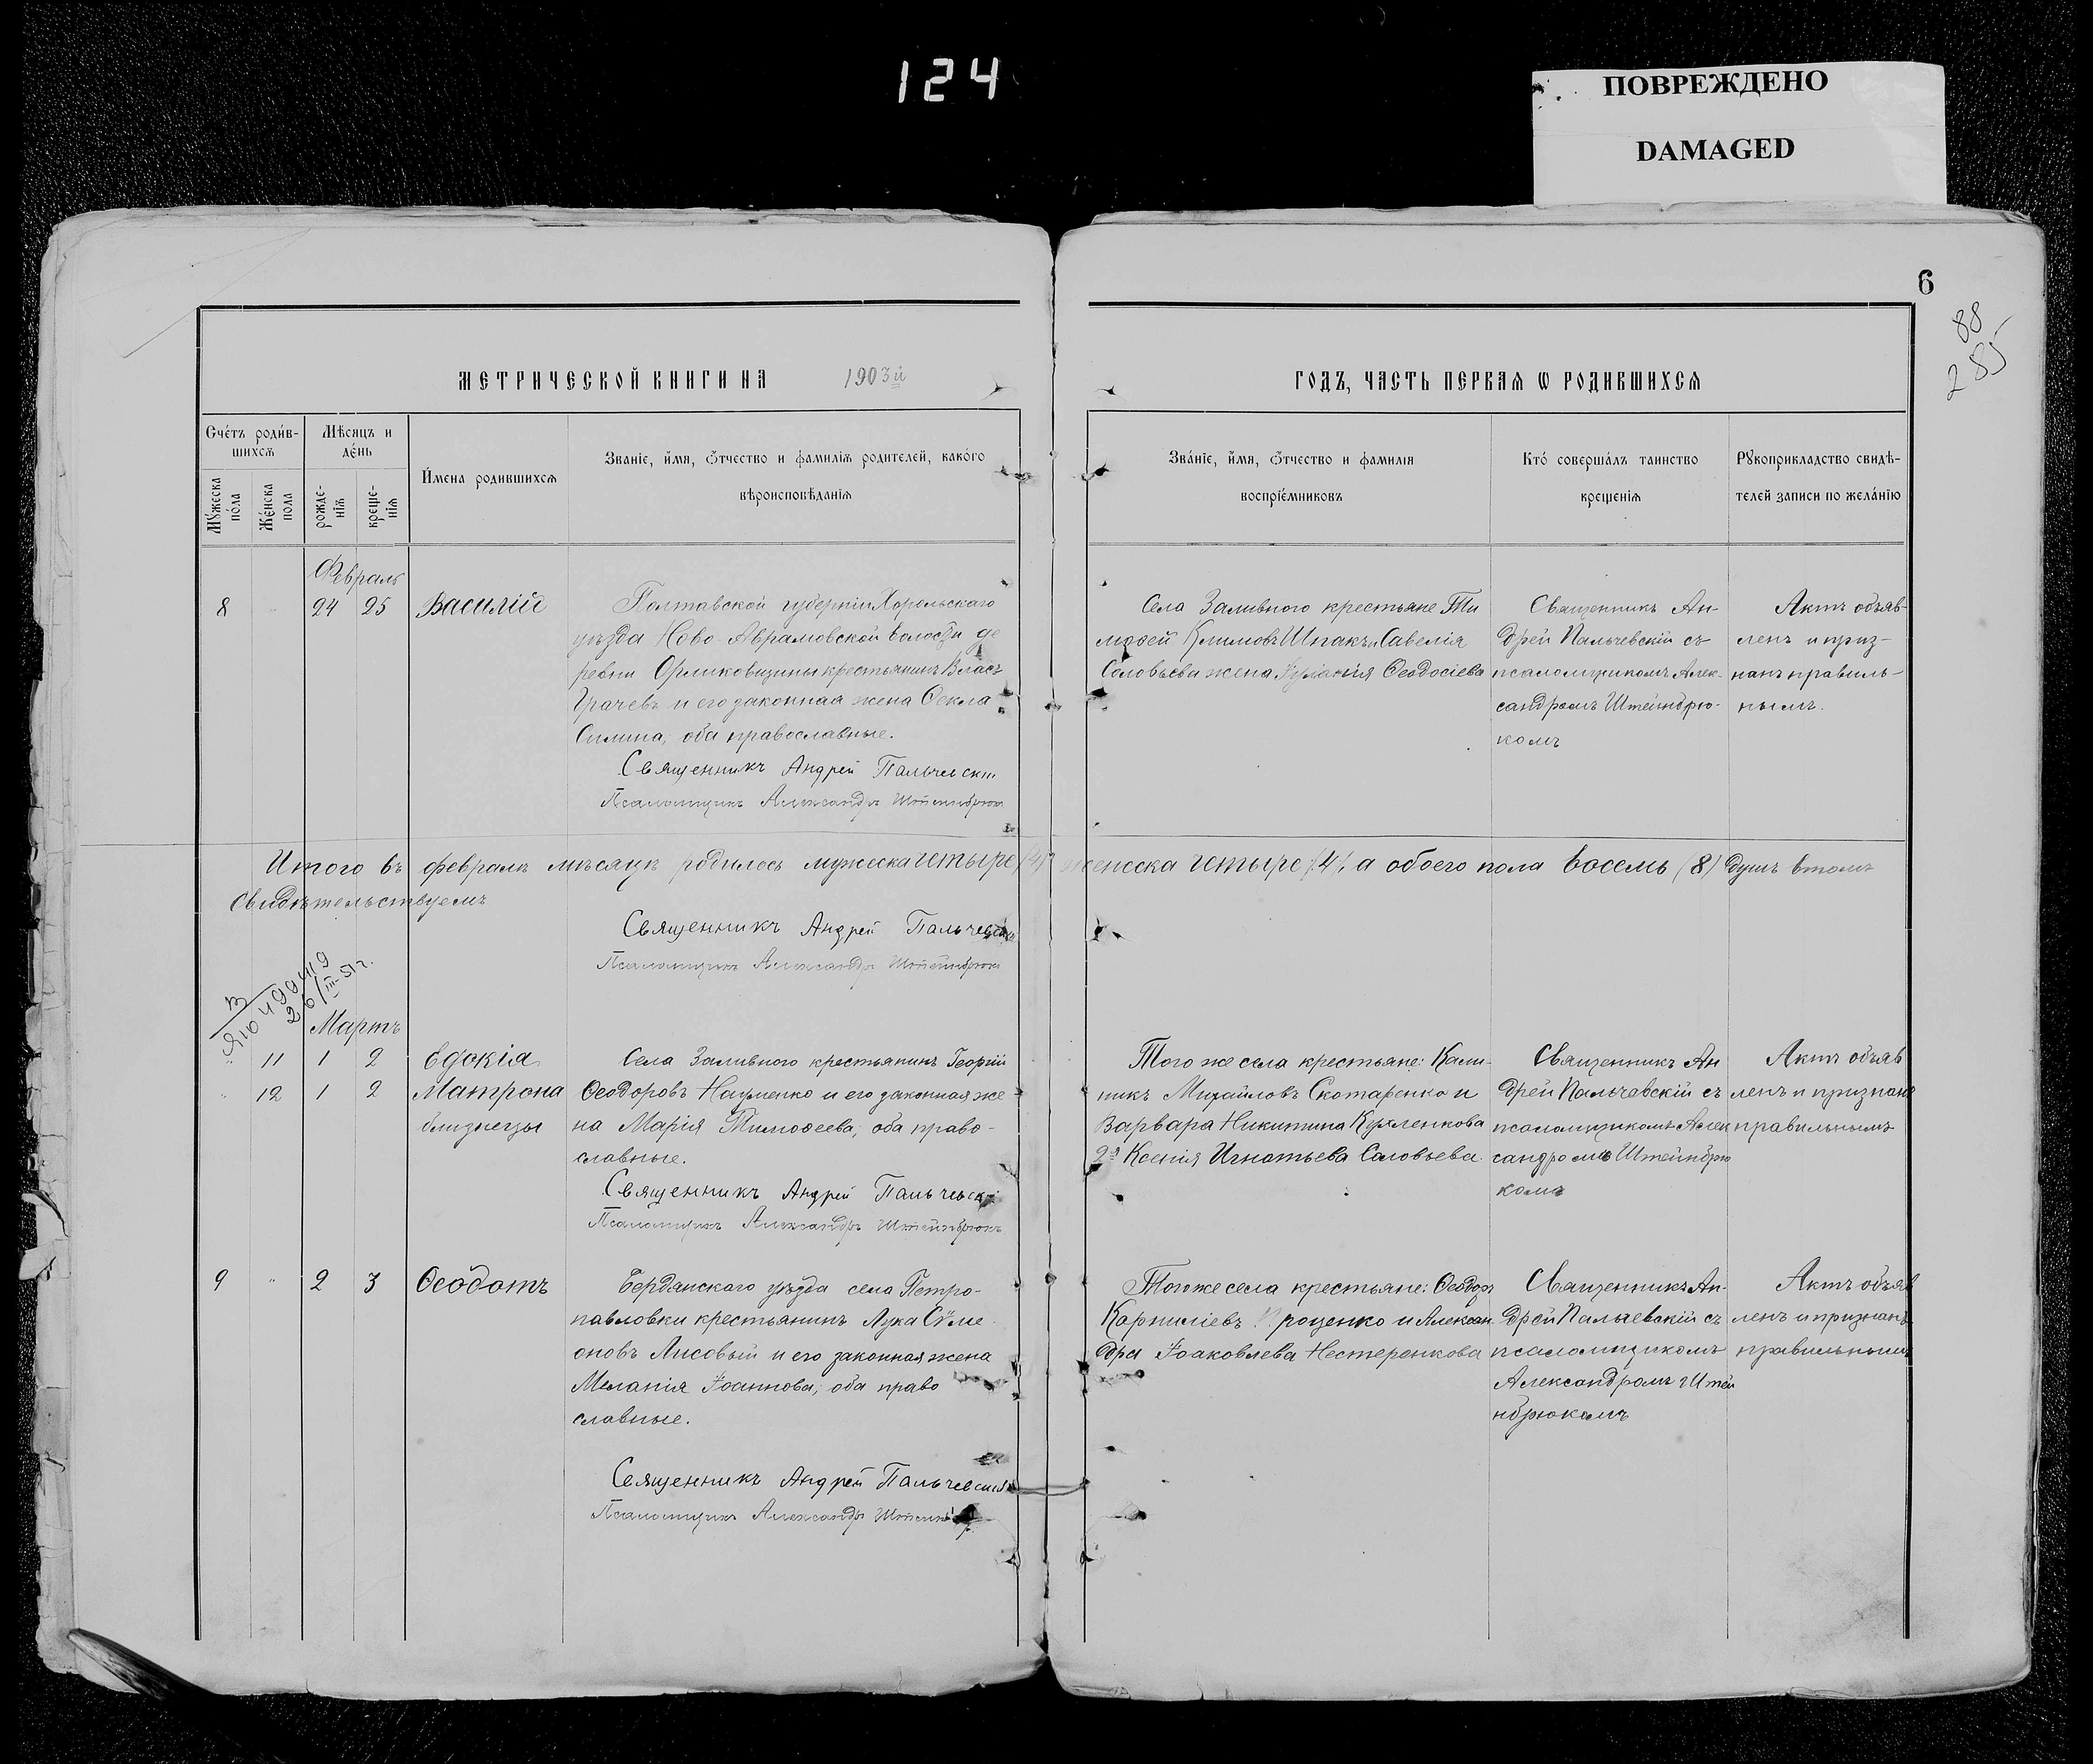 124
ПОВРЕЖДЕНО
DAMAGED
6
88
285
МЕТРИЧЕСКОЙ КНИГИ НА 1903й
ГОДЪ, ЧАСТЬ ПЕРВАѦ Ѡ РОДИВШИХСѦ
Сче́тъ роди́в-
шихсѧ
Мѣсяцъ и
де́нь
Мꙋ́жеска
по́ла
Же́нска
пола
рожде-
нїѧ
креще-
нїѧ
И҆́мена родившихсѧ
Званїе, и҆́мя, ѻ҆́тчество и фамилїѧ родителей, како́го
вѣроисповѣданїѧ
Зва́нїе, и҆́мя, ѻ҆́тчество и фамилїя
воспрїе́мниковъ
Кто́ соверша́лъ таинство
крещенїѧ
Рꙋкоприкладство свидѣ-
телей записи по жела́нїю
Февраль
8 " 24 25 Василій
Полтавской губерніи Хорольскаго
уѣзда Ново-Аврамовской волости де
ревни Орликовщины крестьянинъ Власъ
Грачевъ и его законная жена Ѳекла
Силина, оба православные.
Священникъ Андрей Пальчевскій
Псаломщикъ Александръ Штейнбрюкъ
Села Заливного крестьяне Ти
моѳей Климовъ Шпакъ и Савелія
Соловьева жена Ѳеодосіева
Священникъ Ан-
дрей Пальчевскій съ
псаломщикомъ Алек-
сандромъ Штейнбрю-
комъ
Актъ объяв-
ленъ и приз-
нанъ правиль-
нымъ.
Итого въ февралѣ мѣсяцѣ родилось мужеска четыре /4/, женска четыре /4/, а обоего пола восемь (8) душъ втомъ
Свидѣтельствуемъ
Священникъ Андрей Пальчевскій
Псаломщикъ Александръ Штейнбрюкъ
26/III-51г.
Мартъ
" 11 1 2 Евдокія
" 12 1 2 Матрона
близнецы
Села Заливного крестьянинъ Георгій
Ѳеодоровъ Науменко и его законная же
на Марія Тимоѳеева, оба право-
славные.
Священникъ Андрей Пальчевскій
Псаломщикъ Александръ Штейнбрюкъ
Того же села крестьяне: Кали-
никъ Михайловъ Скотаренко и
Варвара Никитина Кухленкова
2я Ксенія Игнатьева Соловьева
Священникъ Ан
дрей Пальчевскій съ
псаломщикомъ Алек
сандромъ Штейнбрю
комъ
Актъ объяв
ленъ и признанъ
правильнымъ
9 " 2 3 Ѳеодотъ
Бердянскаго уѣзда села Петро-
павловки крестьянинъ Лука Сѵме
оновъ Лисовый и его законная жена
Меланія Іоаннова, оба право
славные.
Священникъ Андрей Пальчевскій
Псаломщикъ Александръ
Того же села крестьяне: Ѳеодоръ
Корниліевъ Проценко и Алексан
дра Іоаковлева Нестеренкова
Священникъ Ан-
дрей Пальчевскій съ
псаломщикомъ
Александромъ Штей
нбрюкомъ
Актъ объяв
ленъ и признанъ
правильнымъ